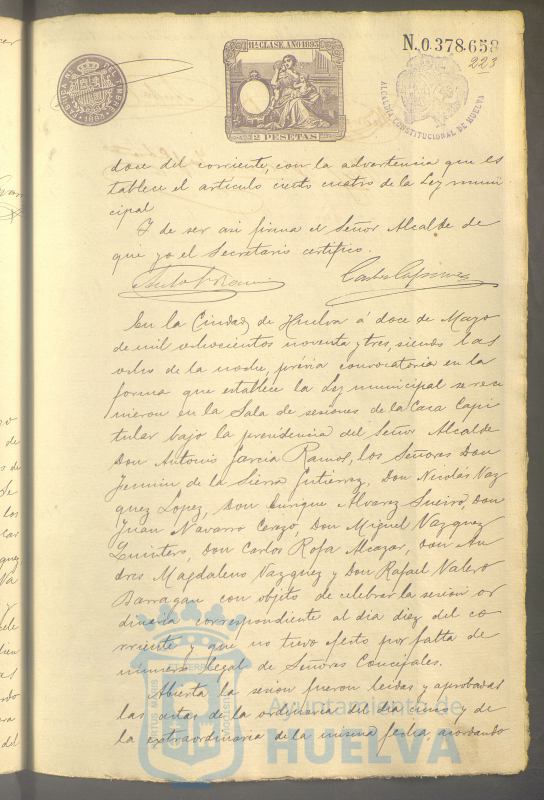 11ª CLASE. AÑO 1893
N. 0.378.658
223
2 PESETAS
1893
ALCALDÍA CONSTITUCIONAL DE HUELVA
doce del corriente, con la advertencia que es
tablece el artículo ciento cuatro de la Ley muni
cipal
Y de ser asi firma el Señor Alcalde de
que yo el Secretario certifico.
En la Ciudad de Huelva á doce de Mayo
de mil ochocientos noventa y tres, siendo las
ocho de la noche, prévia convocatoria en la
forma que establece la Ley municipal se reu
nieron en la Sala de sesiones de la Casa Capi
tular bajo la presidencia del Señor Alcalde
Don Antonio Garcia Ramos, los Señores Don
Fermin de la Sierra Gutierrez, Don Nicolás Vaz
quez Lopez, Don Enrique Alvarez Sueiro, Don
Juan Navarro Cerezo, Don Miguel Vazquez
Quintero, Don Carlos Rofa Alcazar, Don An
dres Magdaleno Vazquez y Don Rafael Valero
Barragan con objeto de celebrar la sesion or
dinaria correspondiente al dia diez del co
rriente y que no tuvo efecto por falta de
número legal de Señores Concejales.
Abierta la sesion fueron leidas y aprobadas
las actas de la ordinaria del dia cinco y de
la extraordinaria de la misma fecha, acordando
Ayuntamiento de
HUELVA